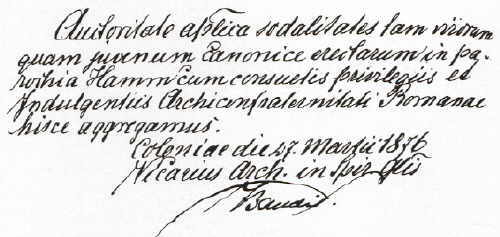 Auctoritate aplica sodalitates tam virorum
quam juvenum canonice erectarum in pa-
rochia Hamm cum consuetis privilegiis et
Indulgentiis Archiconfraternitati Romanae
hisce aggregamus.
Coloniae die 27. Martii 1876
Vicarius Arch. in spir. glis
Baudri.